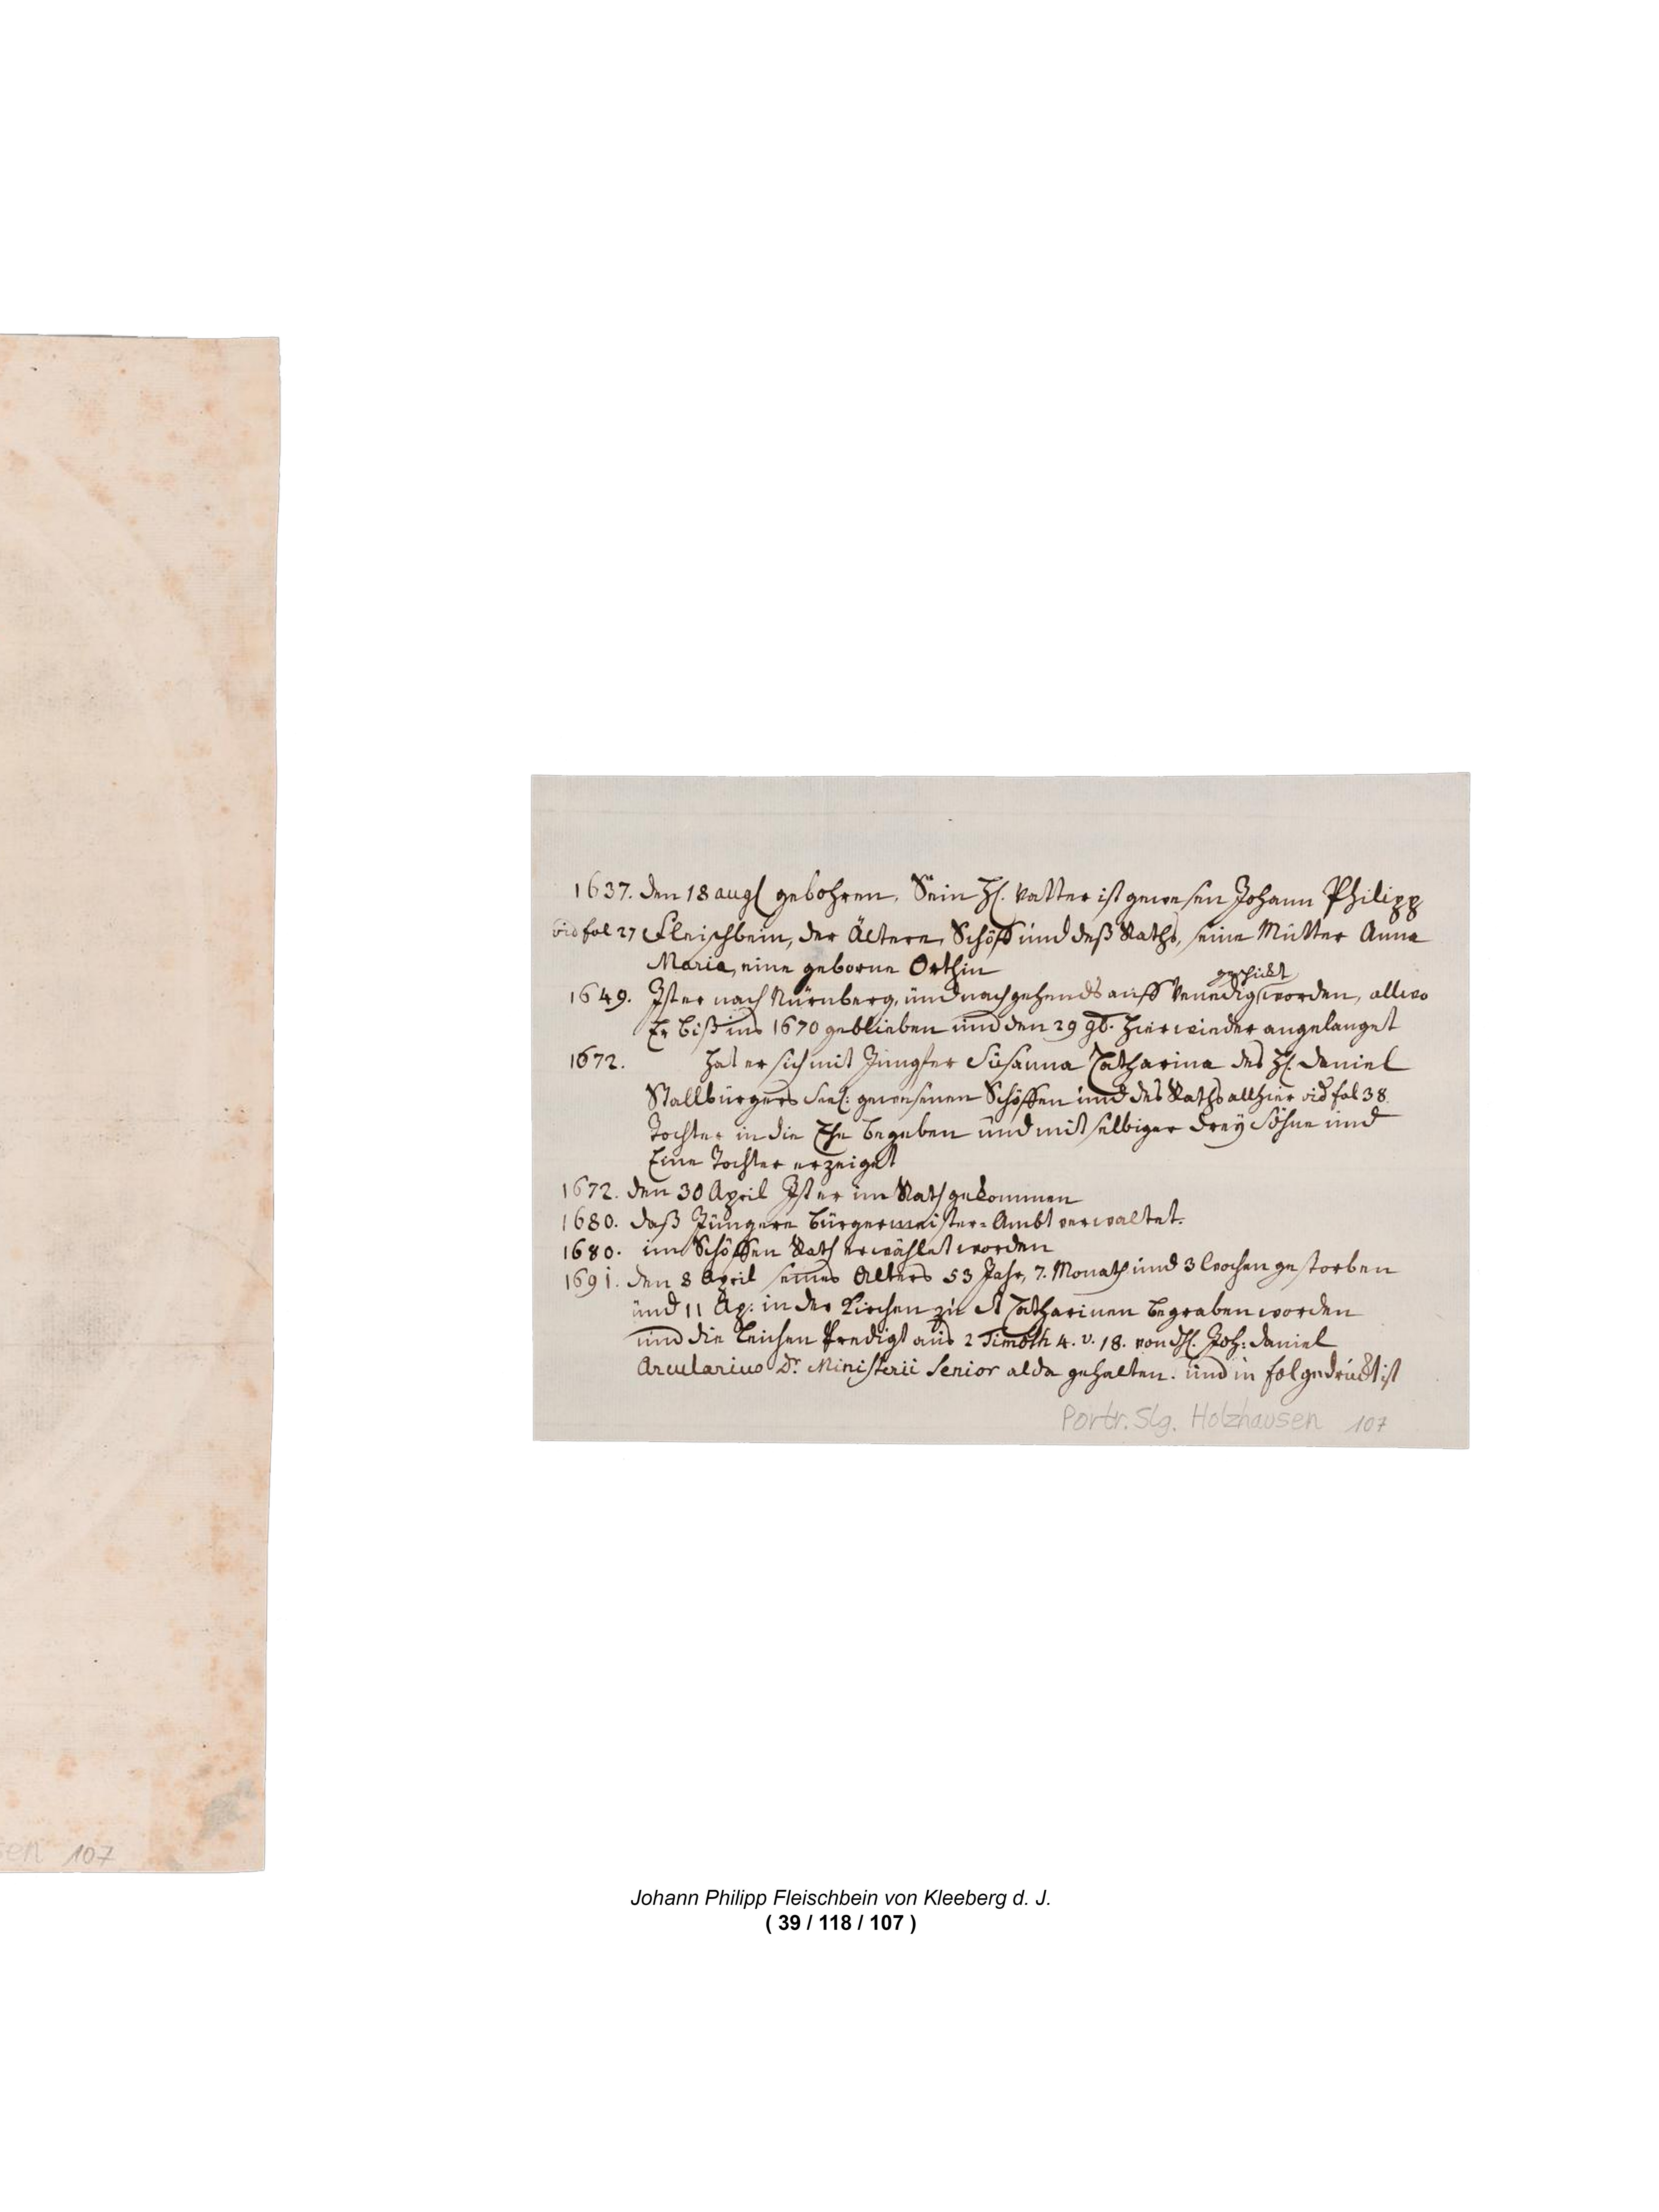 1637. den 18 augl gebohren. Sein Hl. Vatter ist gewesen Johann Philipp
vid fol 27 Fleischbein, der Ältere, Schöff und deß Raths, seine Mutter Anna
Maria, eine geborne Orthin
geschickt
1649. Ist er nach Nürnberg, und nachgehends auff Venedig worden, allwo
Er biß ins 1670 geblieben und den 29 9b. hier wieder angelanget
1672. hat er sich mit Jungfer Susanna Catharina des Hl. Daniel
Stallburgers seel: gewesenen Schöffen und des Raths allhier vid fol 38
Tochter in die Ehe begeben und mit selbiger drey Söhne und
Eine Tochter erzeiget
1672. den 30 April Ist er im Rath gekommen
1680. daß Jüngere Bürgermeister=Ambt verwaltet.
1680. im Schöffen Rath erwählet worden
1691. den 8 April seines Alters 53 Jahr, 7. Monath und 3 Wochen gestorben
und 11 Ap: in der Kirchen zu St Catharinen begraben worden
und die Leichen Predigt aus 2 Timoth 4. v. 18. von Hl. Joh: Daniel
Arcularius Dr. Ministerii Senior alda gehalten. und in fol gedruckt ist
Portr. Slg. Holzhausen 107
sen 107
Johann Philipp Fleischbein von Kleeberg d. J.
( 39 / 118 / 107 )